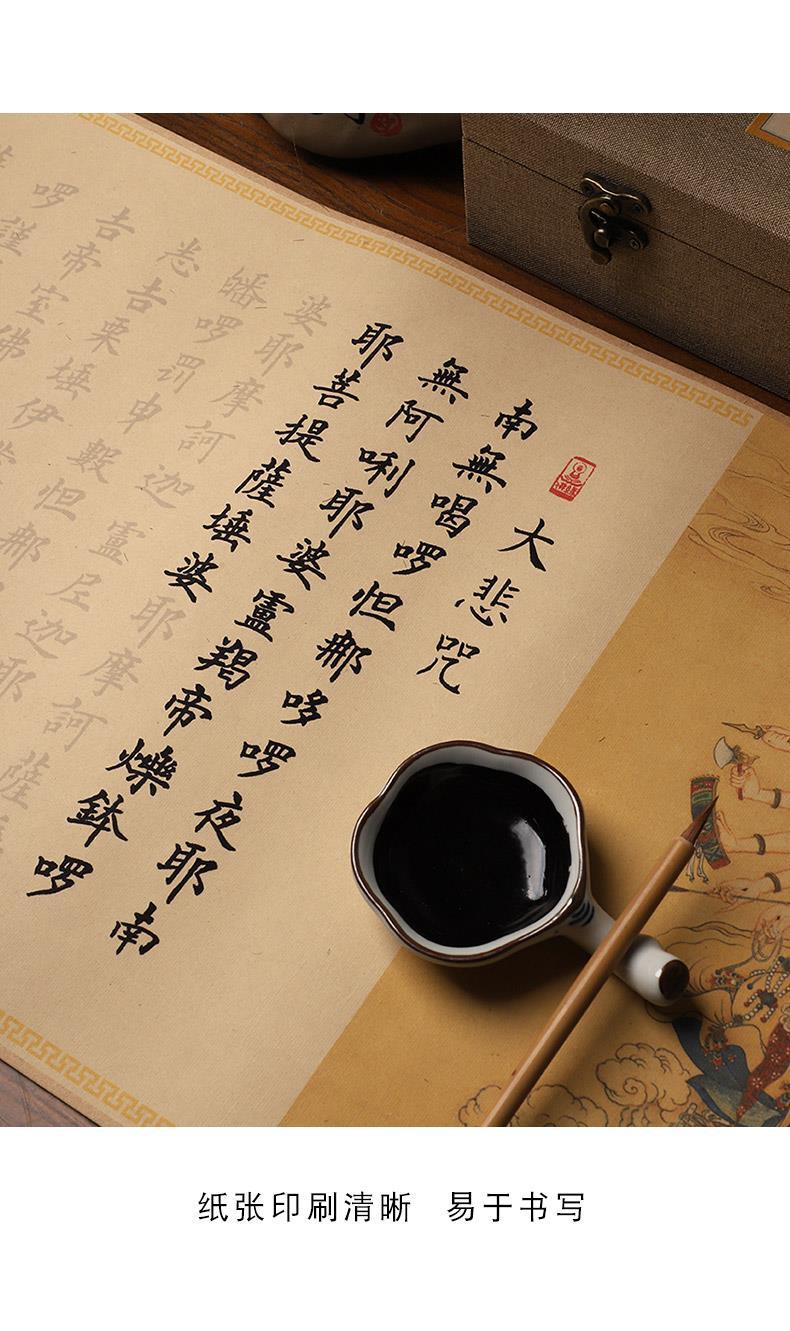 大悲咒
南無喝啰怛郍哆啰夜耶南
無阿唎耶婆盧羯帝爍鉢啰
耶菩提薩埵婆耶摩訶薩
婆耶摩訶迦盧尼迦耶
皤啰罰曳數怛郍
悉吉栗埵伊
吉帝室佛
啰謹
纸张印刷清晰 易于书写